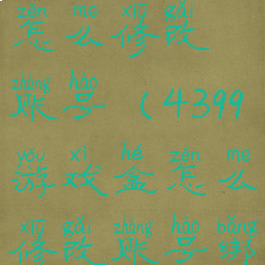 zěn me xiū gǎi
怎么修改
zhàng hào
账号（4399
yóu xì hé zěn me
游戏盒怎么
xiū gǎi zhàng hào bǎng
修改账号绑